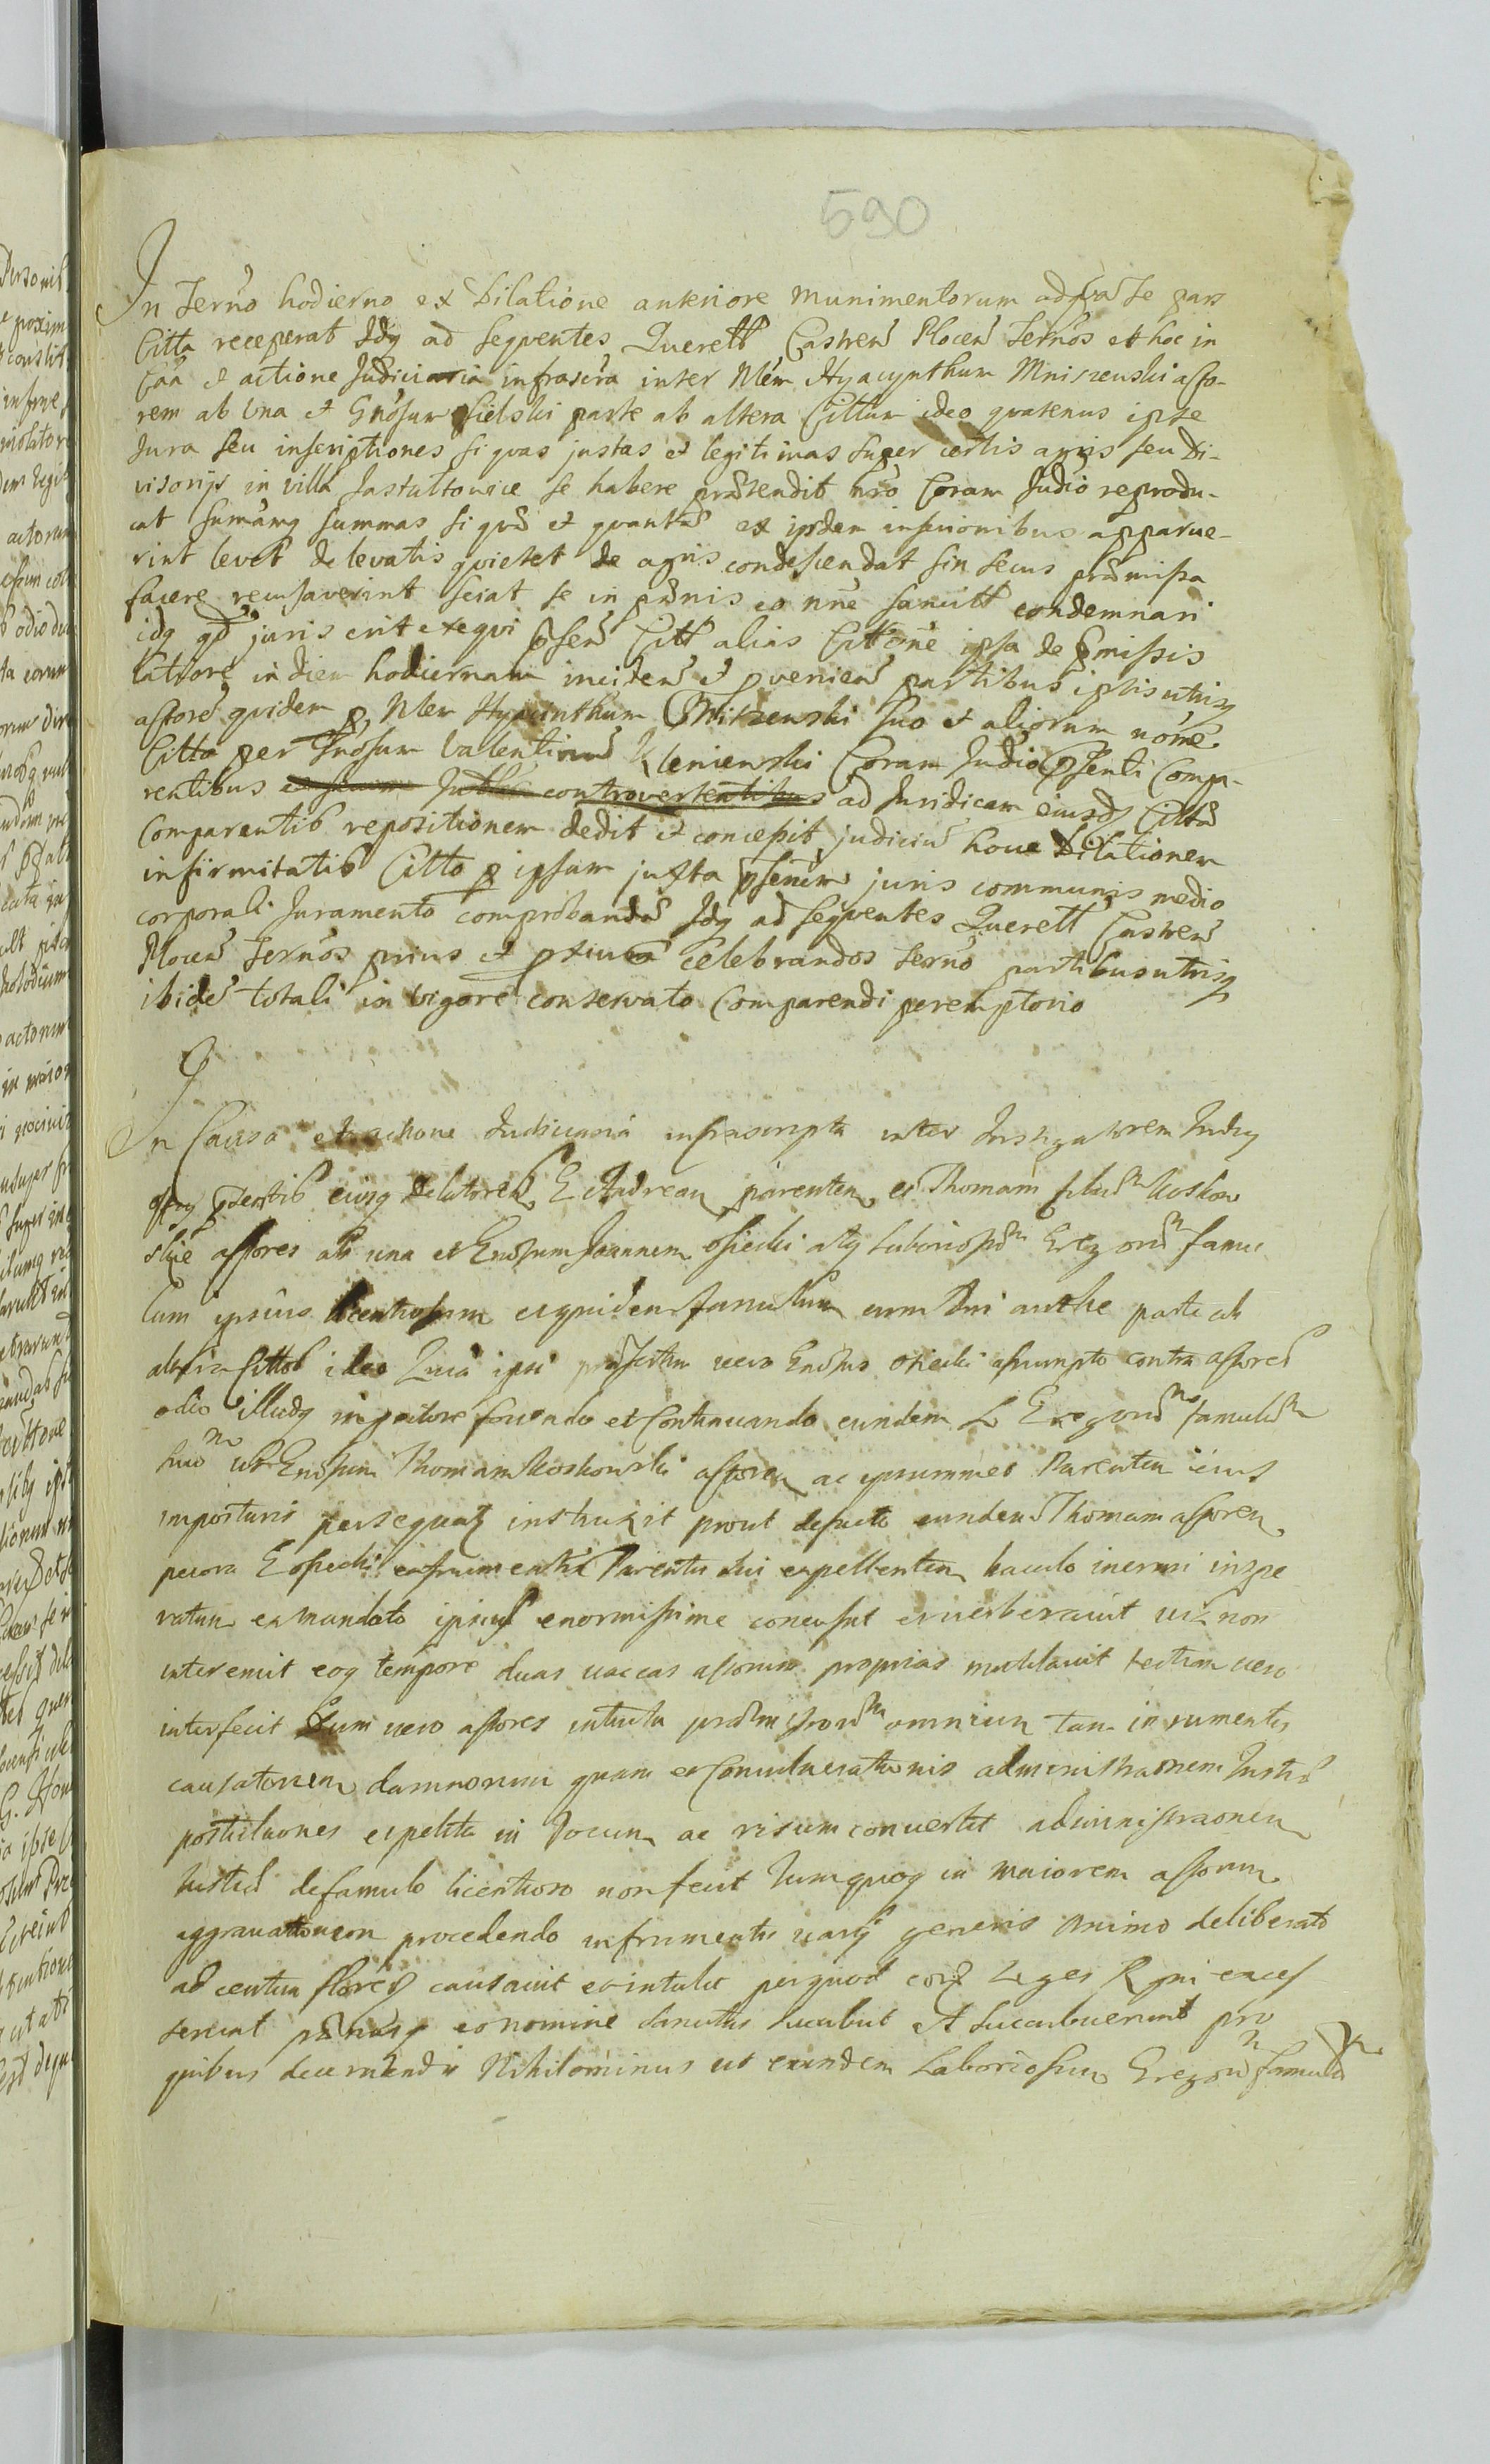 590
In Terno hodierno ex Dilatione anteriore munimentorum ad se pars
Citta receperat Idq ad sequentes Querell Castren Plocen Ternos et hoc in
Caa et actione Judiciaria infrascra inter Mem Hyacynthum Mniszenski acto-
rem ab Una et Gnosum sielski parte ab altera Cittum ideo quatenus ipse
Jura seu inscriptiones si quas justas et legitimas super certis agris seu Di-
visorijs in villa se habere prætendit nro Coram Judio reprodu-
cat sumamq summas si quæ et quantæ ex ipsdem inscrionibus apparue-
rint levet de levatis quietet de agris condescendat sin secus præmissa
facere recusaverint sciat se in pænis eo nne sancitt condemnari
idq qd juris erit exequi psen Citt alias Cittone ipsa de pmissis
latiore in diem hodiernam inciden et pvenien partibus ipsis utrisq
actore quidem p Mem Hyacinthum Mniszenski suo et aliorum nome
Citto per Gnosum Valentinum Kleniewski Coram Judio psenti Compa-
rentibus controvertentibus ad Juridicam eiusdq Citta
Comparentis repositionem dedit et concessit judicium hocce Dilationem
infirmitatis Citto p ipsum juxta juris communis medio
corporali Juramento comprobandæ Idq ad sequentes Querell Castren
Plocen Ternos prius et pxiue celebrandos Terno partibus utrisq
ibidem totali in vigore conservato Comparendi peremptorio
In Causa et actione Judiciaria infrascripta inter Instigatorem Judiq
eiusq delatores G Andream parentem et Thomam filium Koskow
skie actores ab una et Gnosum Joannem osiecki atq Laboriosum famu
lum ipsius licentiosum equidem famulum parte ab
altera Cittos ideo Quia ipsi vero Gnosus osiecki assumpto contra actores
odio illudq in pectore fovendo et Continuando eundem L famulum
suum ut Gnosum Thomam Koskowski actorem ac ipsummet Parentem eius
importunis persequatur instruxit prout defacto eundem Thomam actorem
pecora G osiecki ex frumentis Parentis sui expellentem baculo inermi inspe
ratum ex mandato ipsius enormissime concussit et verberavit vix non
interemit eoq tempore duas vaccas actorum proprias mutilavit tertiam vero
interfecit Dum vero actores intuitu præmissorum omnium tam in frumentis
causatorum damnorum quam et Convulnerationis administraonem Justæ
postulaones expetita in Jocum ac risum convertit administraonem
Justæ de famulo licentioso non fecit Tumquoq in maiorem actorum
aggravationem procedendo in frumentis varij generis animo deliberato
ad centum causavit et intulit perquod Leges Rgni exces
serunt pænasq eo nomine sancitas sucubuit et succubuerunt pro
quibus decernendis Nihilominus ut eundem Laboriosum famulum